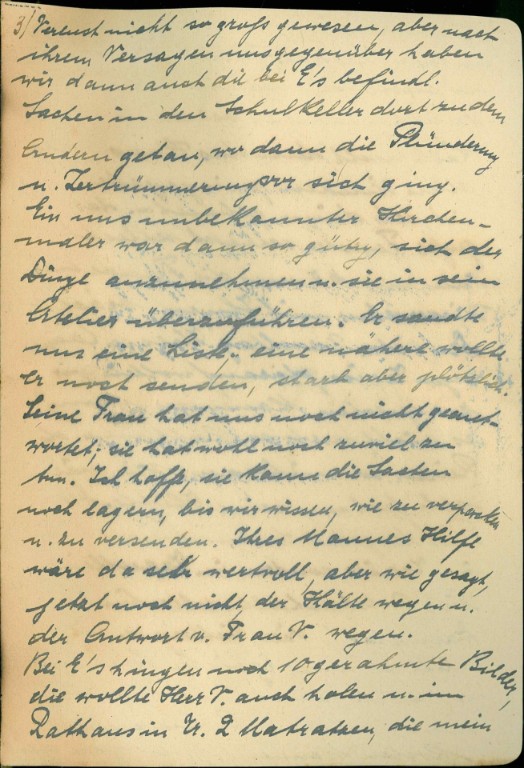 3) Verlust nicht so groß gewesen, aber nach
ihrem Versagen uns gegenüber haben
wir dann auch die bei E's befindl.
Sachen in den Schulkeller dort zu den
Andern getan, wo dann die Plünderung
u. Zertrümmerung vor sich ging.
Ein uns unbekannter Kirchen-
maler war dann so gütig, sich der
Dinge anzunehmen u. sie in sein
Atelier überzuführen. Er sandte
uns eine Liste, eine nähere wollte
er noch senden, starb aber plötzlich.
Seine Frau hat uns noch nicht geant-
wortet; sie hat wohl noch zuviel zu
tun. Ich hoffe, sie kann die Sachen
noch lagern, bis wir wissen, wie zu verpacken
u. zu versenden. Ihres Mannes Hilfe
wäre da sehr wertvoll, aber wie gesagt,
jetzt noch nicht, der Kälte wegen u.
der Antwort v. Frau V. wegen.
Bei E's hingen noch 10 gerahmte Bilder,
die wollte Herr V. auch holen u. im
Rathaus in 2 Matratzen, die mein